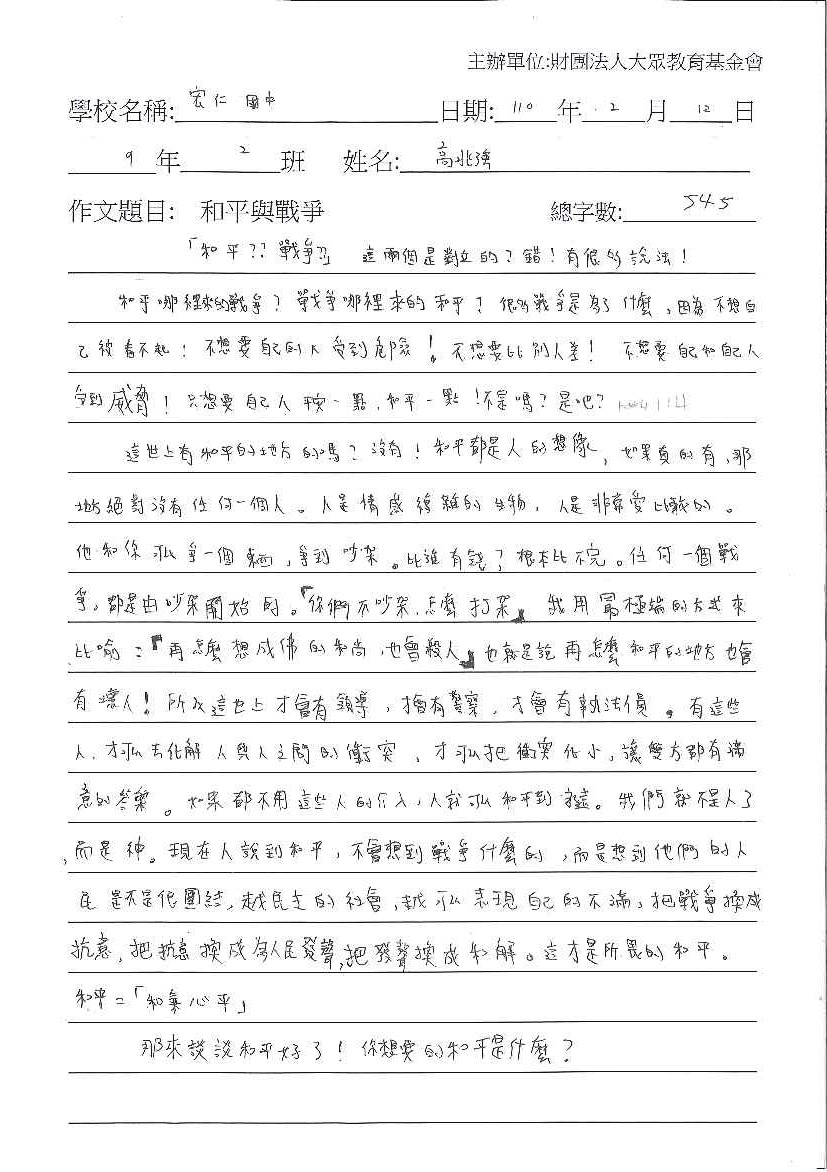 主辦單位:財團法人大眾教育基金會
學校名稱: 宏仁 國中 日期: 110 年 2 月 12 日
9 年 2 班 姓名: 高兆
作文題目: 和平與戰爭 總字數: 545
「和平??戰爭??」 這兩個是對立的?錯!有很多說法!
和平哪裡來的戰爭?戰爭哪裡來的和平?很多戰爭是為了什麼,因為不想自
己被看不起!不想要自己的人受到危險!不想要比別人差!不想要自己和自己人
受到威脅!只想要自己人平安一點,和平一點!不是嗎?是吧?
這世上有和平的地方的嗎?沒有!和平都是人的想像,如果真的有,那
地絕對沒有任何一個人。人是情感複雜的生物,人是非常愛比較的。
他和你可以爭一個車輛,爭到吵架。比誰有錢?根本比不完。任何一個戰
爭,都是由吵架開始的。「你們不吵架,怎麼打架」我用最極端的方式來
比喻:「再怎麼想成佛的和尚,也會殺人」也就是說再怎麼和平的地方也會
有壞人!所以這世上才會有領導,才會有警察,才會有執法員。有這些
人,才可以去化解人與人之間的衝突,才可以把衝突化小,讓雙方都有滿
意的答案。如果都不用這些人的介入,人就可以和平到永遠。我們就不是人了
,而是神。現在人說到和平,不會想到戰爭什麼的,而是想到他們的人
民是不是很團結,越民主的社會,越可以表現自己的不滿,把戰爭換成
抗意,把抗意換成為人民發聲,把發聲換成和解。這才是所畏的和平。
和平=「和氣心平」
那來談談和平好了!你想要的和平是什麼?